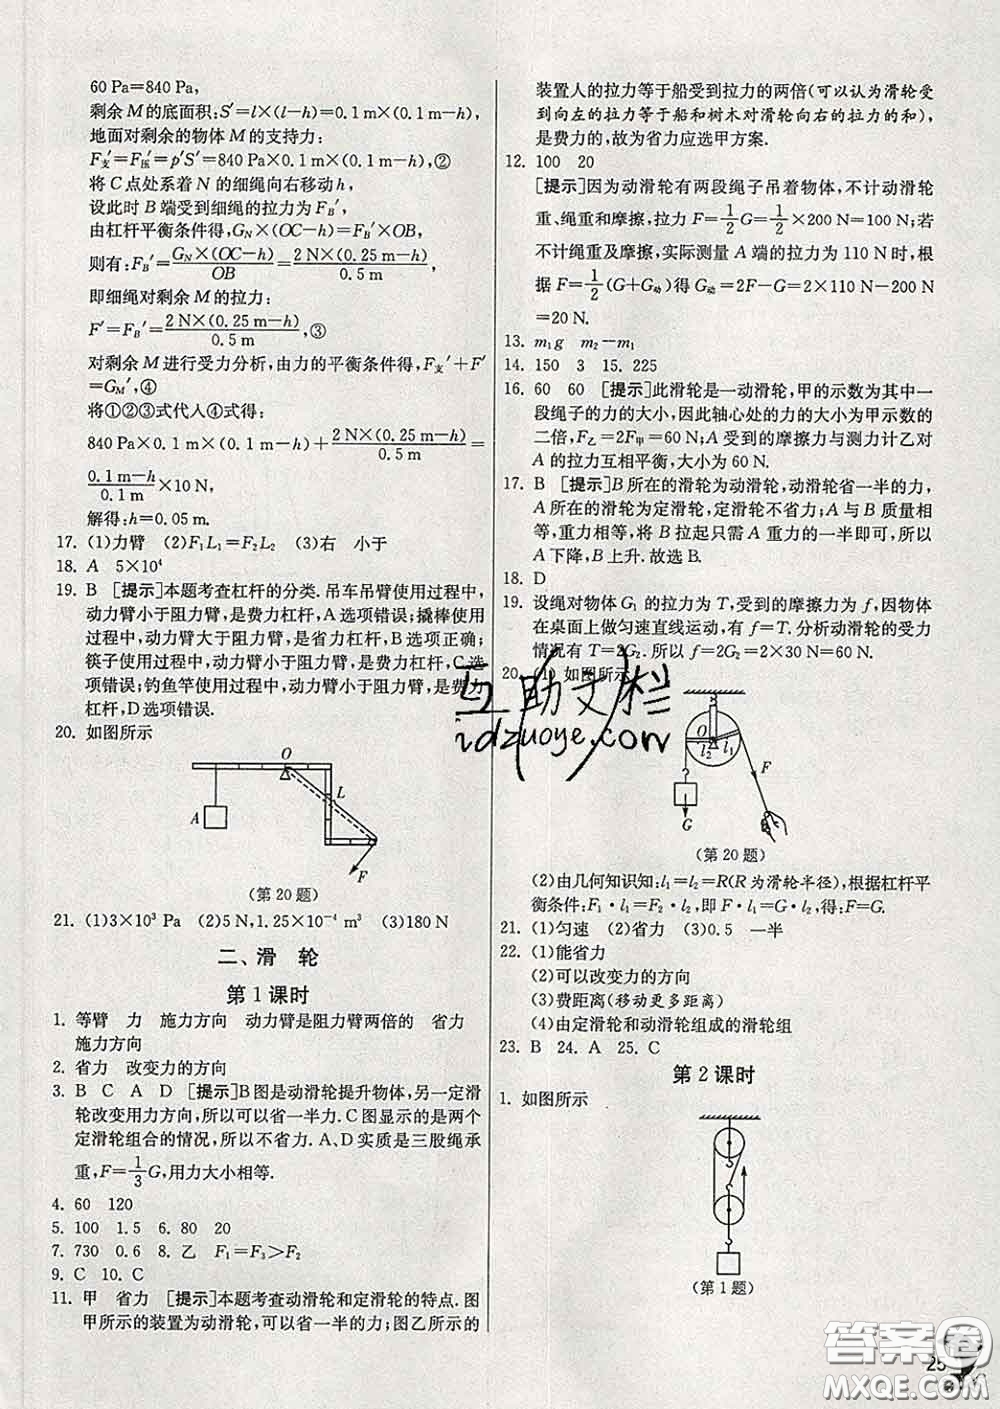 60 Pa=840 Pa,
剩余 M 的底面积:S′=l×(l−h)=0.1 m×(0.1 m−h),
地面对剩余的物体 M 的支持力:
F支′=F压′=p′S′=840 Pa×0.1 m×(0.1 m−h),②
将 C 点处系着 N 的细绳向右移动 h,
设此时 B 端受到细绳的拉力为 FB′,
由杠杆平衡条件得,GN×(OC−h)=FB′×OB,
则有:FB′=GN×(OC−h)/OB=2 N×(0.25 m−h)/0.5 m,
即细绳对剩余 M 的拉力:
F′=FB′=2 N×(0.25 m−h)/0.5 m,③
对剩余 M 进行受力分析,由力的平衡条件得,F支′+F′
=GM′,④
将①②③式代人④式得:
840 Pa×0.1 m×(0.1 m−h)+2 N×(0.25 m−h)/0.5 m=
(0.1 m−h)/0.1 m×10 N,
解得:h=0.05 m.
17. (1)力臂 (2)F1L1=F2L2 (3)右 小于
18. A 5×10⁴
19. B [提示]本题考查杠杆的分类.吊车吊臂使用过程中,
动力臂小于阻力臂,是费力杠杆,A 选项错误;撬棒使用
过程中,动力臂大于阻力臂,是省力杠杆,B 选项正确;
筷子使用过程中,动力臂小于阻力臂,是费力杠杆,C 选
项错误;钓鱼竿使用过程中,动力臂小于阻力臂,是费力
杠杆,D 选项错误.
20. 如图所示
O
L
A
F
(第 20 题)
21. (1)3×10³ Pa (2)5 N,1.25×10⁻⁴ m³ (3)180 N
二、滑 轮
第 1 课时
1. 等臂 力 施力方向 动力臂是阻力臂两倍的 省力
施力方向
2. 省力 改变力的方向
3. B C A D [提示]B 图是动滑轮提升物体,另一定滑
轮改变用力方向,所以可以省一半力.C 图显示的是两个
定滑轮组合的情况,所以不省力.A、D 实质是三股绳承
重,F=1/3G,用力大小相等.
4. 60 120
5. 100 1.5 6. 80 20
7. 730 0.6 8. 乙 F1=F3>F2
9. C 10. C
11. 甲 省力 [提示]本题考查动滑轮和定滑轮的特点.图
甲所示的装置为动滑轮,可以省一半的力;图乙所示的
装置人的拉力等于船受到拉力的两倍(可以认为滑轮受
到向左的拉力等于船和树木对滑轮向右的拉力的和),
是费力的,故为省力应选甲方案.
12. 100 20
[提示]因为动滑轮有两段绳子吊着物体,不计动滑轮
重、绳重和摩擦,拉力 F=1/2G=1/2×200 N=100 N;若
不计绳重及摩擦,实际测量 A 端的拉力为 110 N 时,根
据 F=1/2(G+G动)得 G动=2F−G=2×110 N−200 N
=20 N.
13. m1g m2−m1
14. 150 3 15. 225
16. 60 60 [提示]此滑轮是一动滑轮,甲的示数为其中一
段绳子的力的大小,因此轴心处的力的大小为甲示数的
二倍,F乙=2F甲=60 N;A 受到的摩擦力与测力计乙对
A 的拉力互相平衡,大小为 60 N.
17. B [提示]B 所在的滑轮为动滑轮,动滑轮省一半的力,
A 所在的滑轮为定滑轮,定滑轮不省力;A 与 B 质量相
等,重力相等,将 B 拉起只需 A 重力的一半即可,所以
A 下降,B 上升.故选 B.
18. D
19. 设绳对物体 G1 的拉力为 T,受到的摩擦力为 f,因物体
在桌面上做匀速直线运动,有 f=T.分析动滑轮的受力
情况有 T=2G2.所以 f=2G2=2×30 N=60 N.
20. (1) 如图所示
O
l2 l1
F
G
(第 20 题)
(2)由几何知识知:l1=l2=R(R 为滑轮半径),根据杠杆平
衡条件:F1·l1=F2·l2,即 F·l1=G·l2,得:F=G.
21. (1)匀速 (2)省力 (3)0.5 一半
22. (1)能省力
(2)可以改变力的方向
(3)费距离(移动更多距离)
(4)由定滑轮和动滑轮组成的滑轮组
23. B 24. A 25. C
第 2 课时
1. 如图所示
(第 1 题)
互助文栏
idzuoye.com
答案卷
MXQE.COM
25